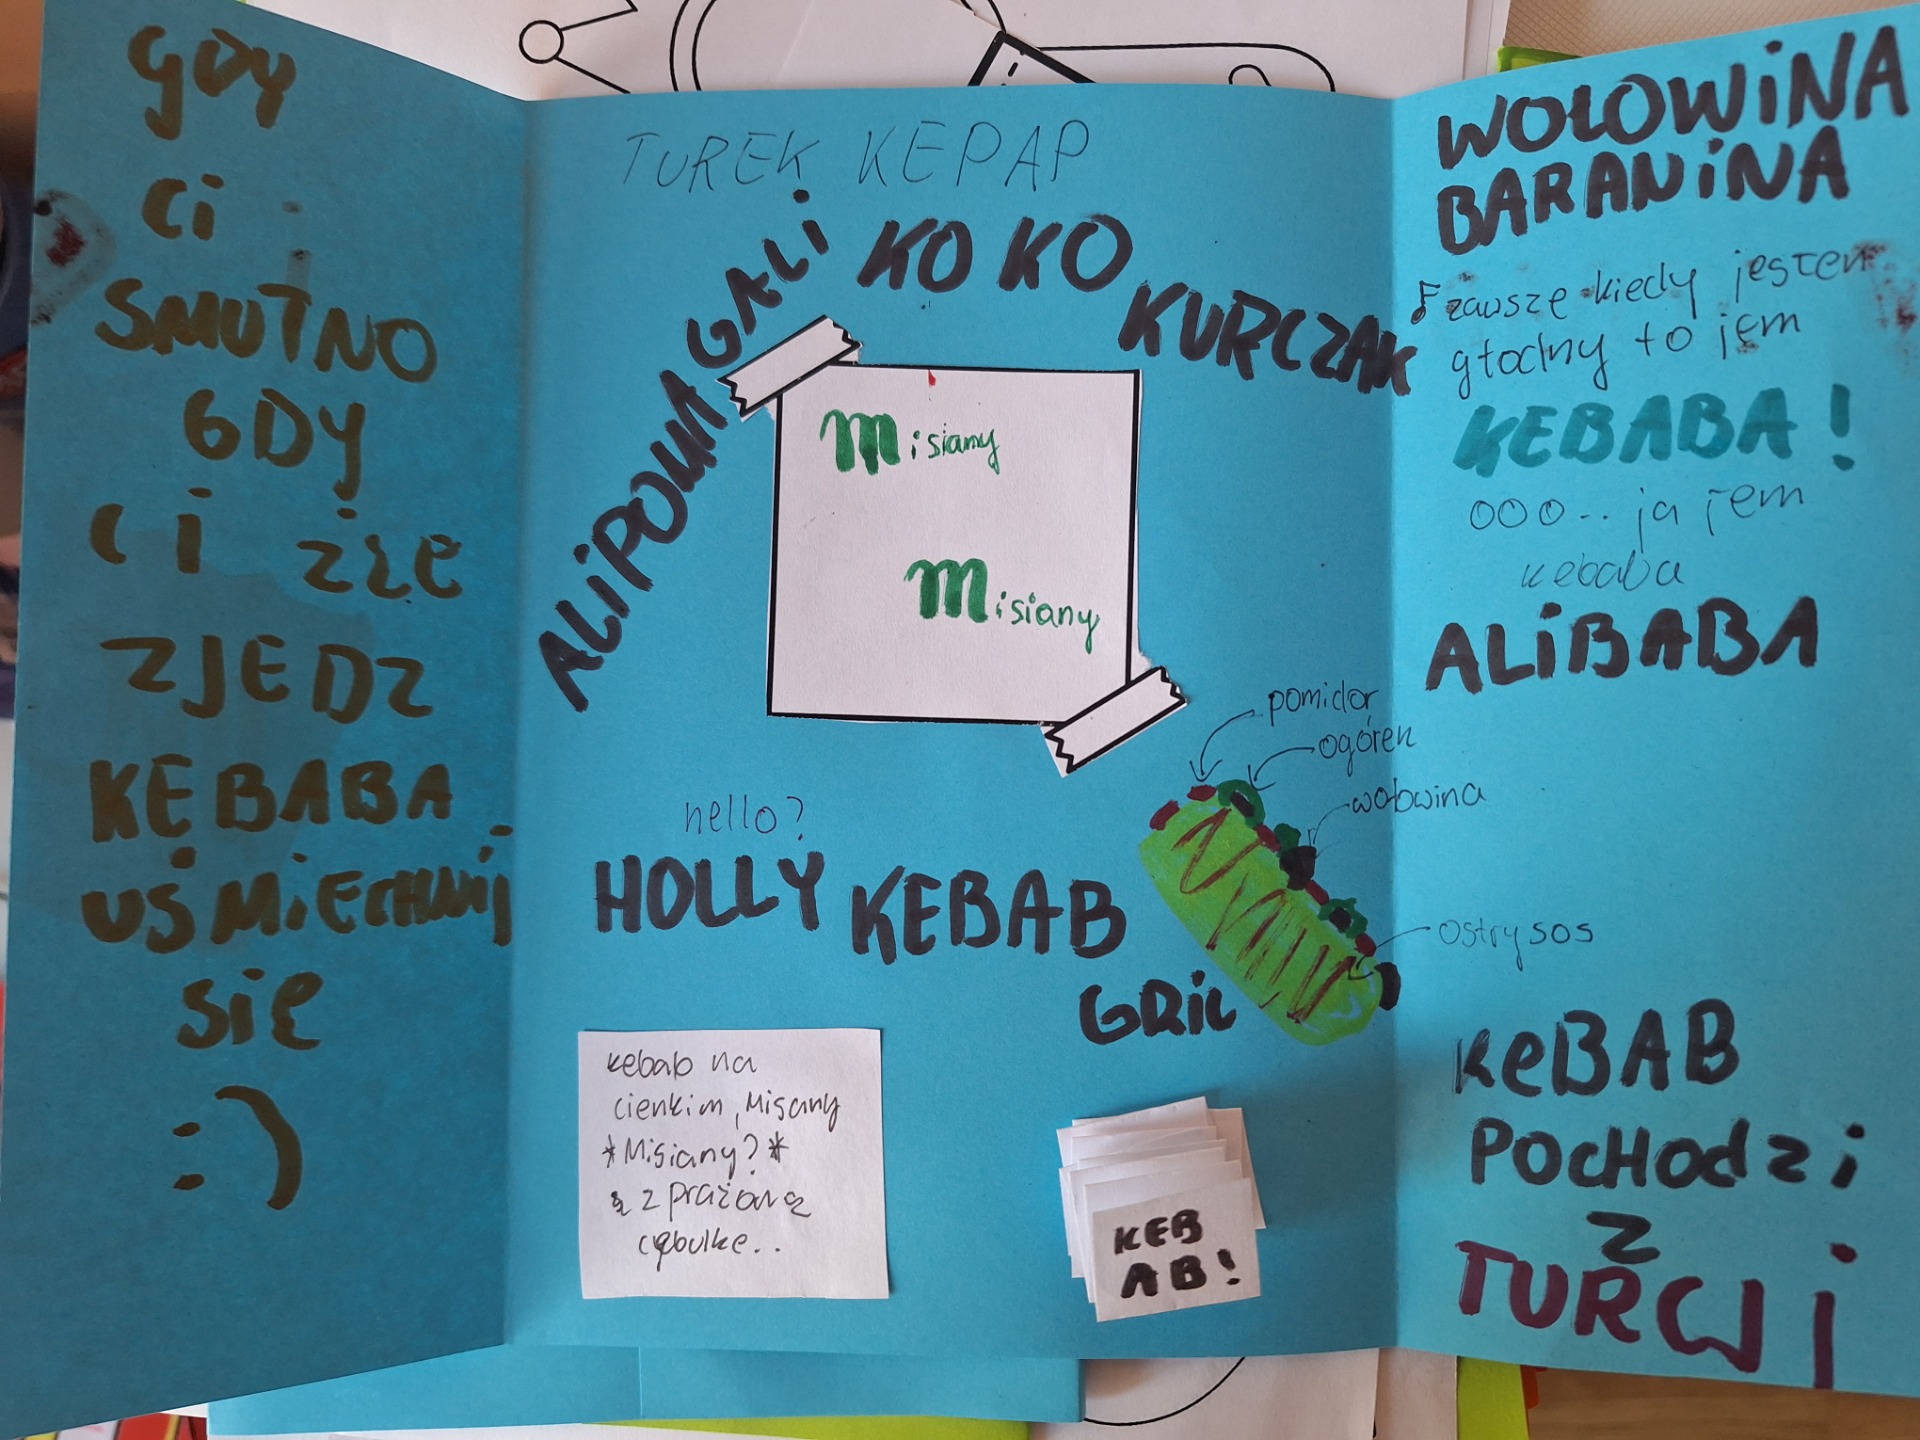 GDY
Ci
SMUTNO
GDY
Ci źle
ZJEDZ
KEBABA
UŚMiECHNIJ
Się
:)
TUREK KEPAP
ALiPOWA GALi KO KO KURCZAK
Misiamy
Misiany
hello?
HOLLY KEBAB
GRiL
pomidor
ogórek
wołowina
ostry sos
kebab na
cienkim, Misany
*Misiany?*
z prażoną
cębulke..
KEB
AB!
WOŁOWiNA
BARANiNA
zawsze kiedy jestem
głodny to jem
KEBABA!
ooo.. ja jem
kebaba
ALiBABA
KeBAB
POcHOdzi
Z
TURCJI